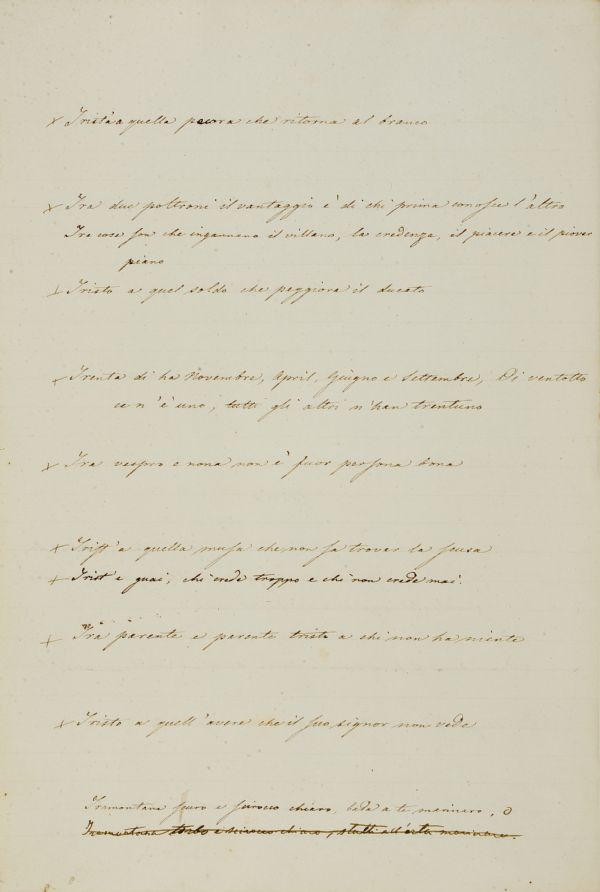 x Trist'a quella pecora che ritorna al branco
x Tra due poltroni il vantaggio è di chi prima conosce l'altro
Tre cose son che ingannano il villano, la credenza, il piacere e il piover
piano
x Tristo a quel soldo che peggiora il ducato
x Trenta dì ha Novembre, April, Giugno e Settembre, Di ventotto
ce n'è uno, tutti gli altri n'han trentuno
x Tra vespro e nona non è fuor persona bona
x Trist'a quella musa che non sa trovar la scusa
x Trist'e guai, chi crede troppo e chi non crede mai.
x Tra parente e parente tristo a chi non ha niente
x Tristo a quell'avere che il suo signor non vede
Tramontana scura e scirocco chiaro, bada a te marinaro, o
Tramontana torba e scirocco chiaro, statti all'erta marinaro.